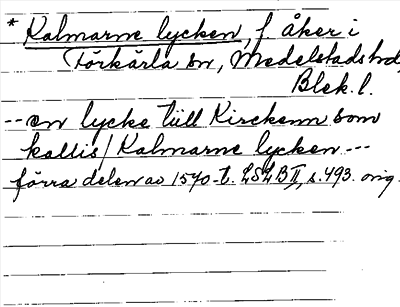 * Kalmarne lycken, f. åker i
Förkärla sn, Medelstads hd,
Blek. l.
-- en lycke till Kirckenn som
kallis / Kalmarne lycken ---
förra delen av 1570-t. LSLB II, s. 493. orig.